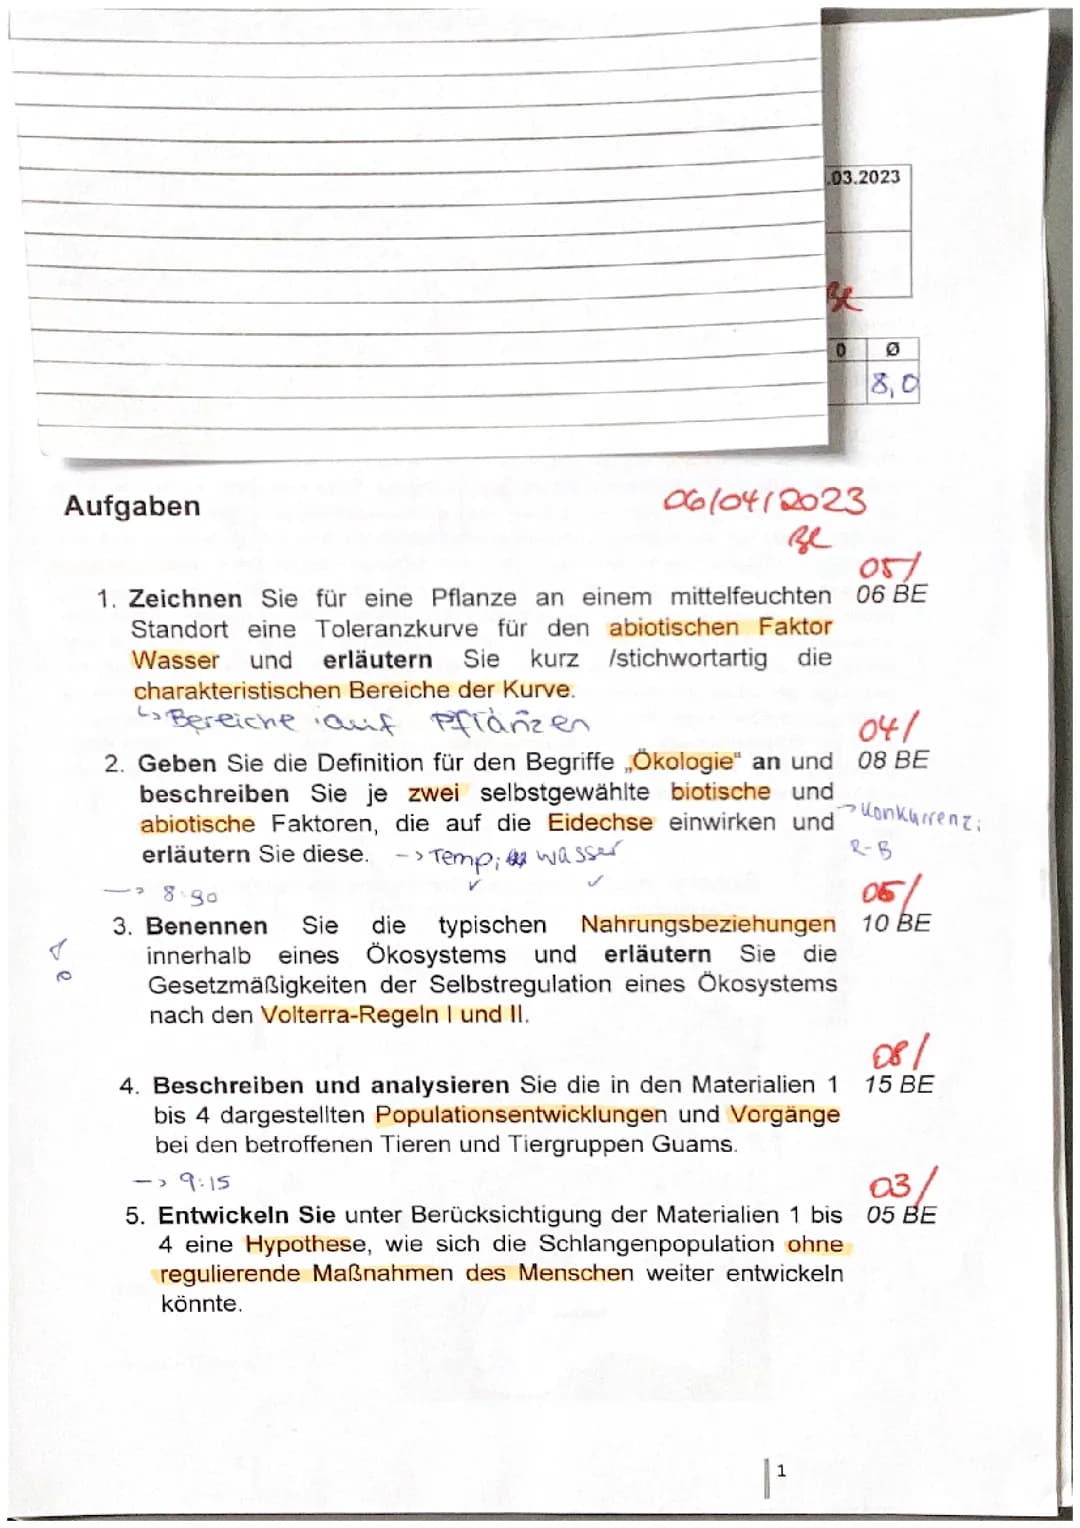 .03.2023
Be
0 Ø
8,0
Aufgaben
06/04/2023
Be
05/
1. Zeichnen Sie für eine Pflanze an einem mittelfeuchten 06 BE
Standort eine Toleranzkurve für den abiotischen Faktor
Wasser und erläutern Sie kurz /stichwortartig die
charakteristischen Bereiche der Kurve.
↳ Bereiche auf Pflanzen
04/
2. Geben Sie die Definition für den Begriffe „Ökologie" an und 08 BE
beschreiben Sie je zwei selbstgewählte biotische und
abiotische Faktoren, die auf die Eidechse einwirken und → Konkurrenz;
erläutern Sie diese. -> Temp; Wasser R-B
-> 8:30
05/
3. Benennen Sie die typischen Nahrungsbeziehungen 10 BE
innerhalb eines Ökosystems und erläutern Sie die
Gesetzmäßigkeiten der Selbstregulation eines Ökosystems
nach den Volterra-Regeln I und II.
08/
4. Beschreiben und analysieren Sie die in den Materialien 1 15 BE
bis 4 dargestellten Populationsentwicklungen und Vorgänge
bei den betroffenen Tieren und Tiergruppen Guams.
-> 9:15
03/
5. Entwickeln Sie unter Berücksichtigung der Materialien 1 bis 05 BE
4 eine Hypothese, wie sich die Schlangenpopulation ohne
regulierende Maßnahmen des Menschen weiter entwickeln
könnte.
1